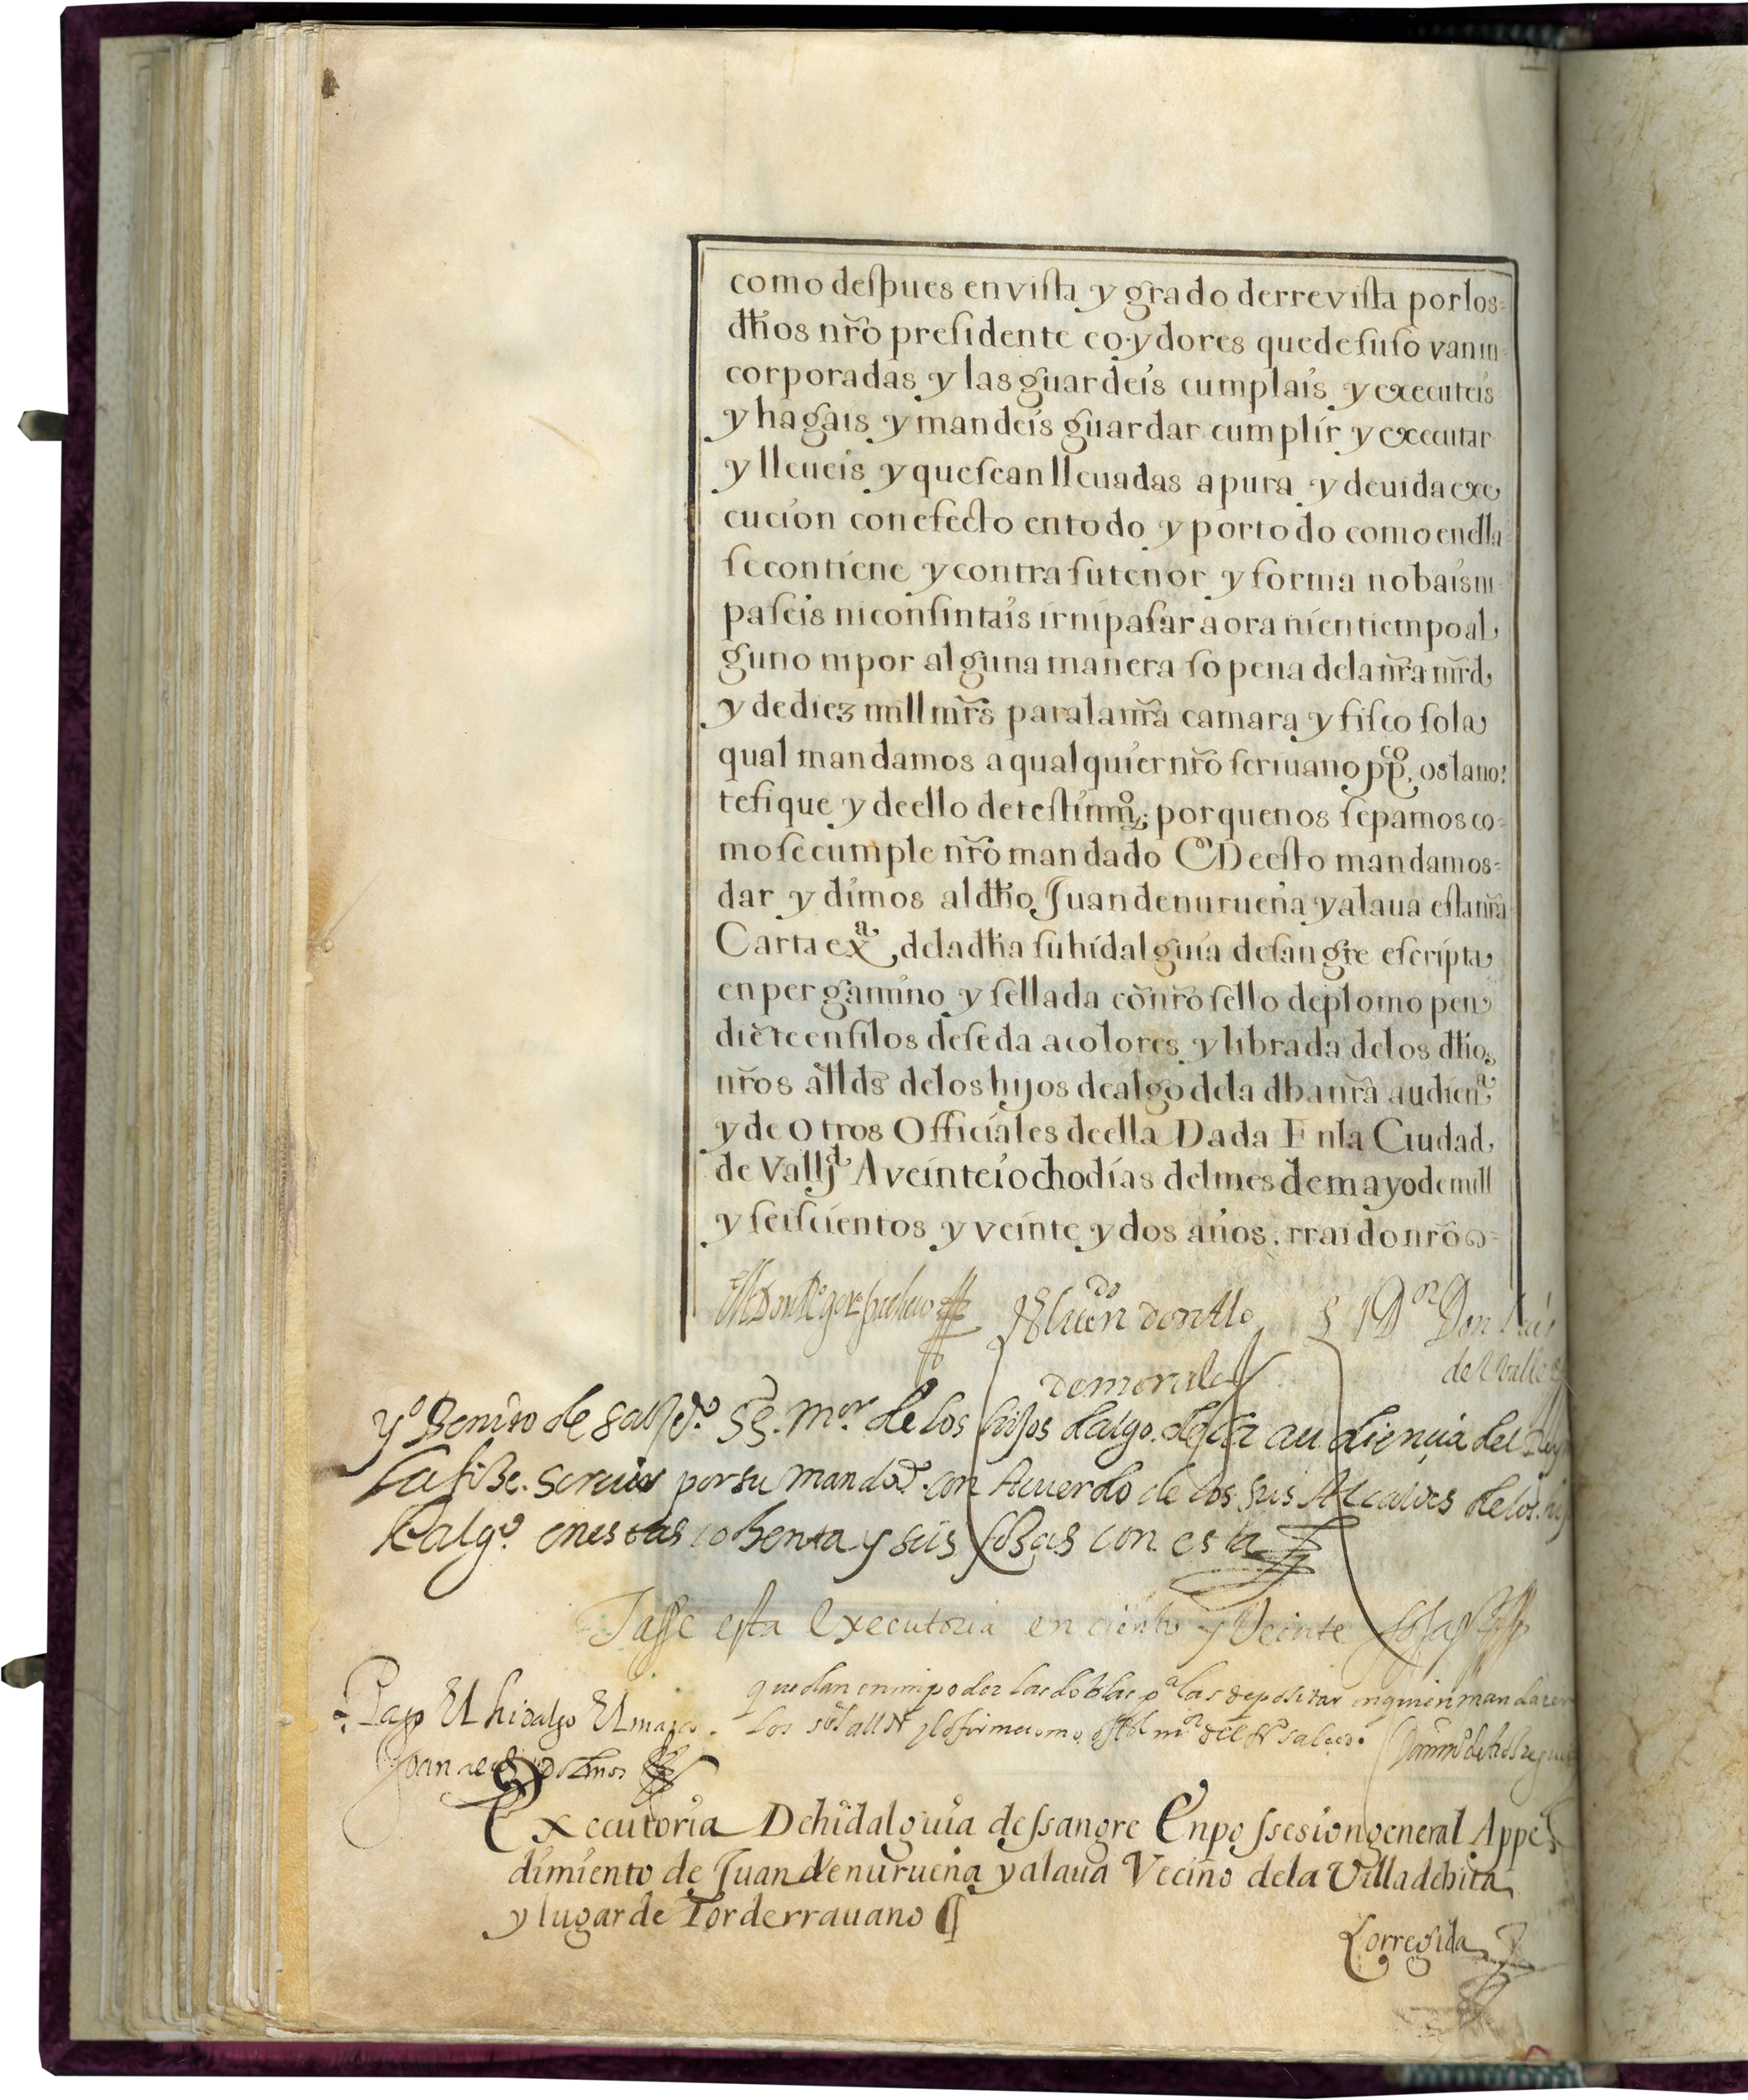 como deſpues en viſta y grado derreviſta por los
dħos nr̃o preſidente eoydores que de ſuſo van in
corporadas y las guardeis cumplais y executeis
y hagais y mandeis guardar cumplir y executar
y lleueis y que ſean lleuadas a pura y deuida exe
cucion con efecto en todo y por todo como en ella
ſe contiene y contra ſu tenor y forma no bais ni
paſeis ni conſintais ir ni paſar aora ni en tiempo al
guno ni por alguna manera ſo pena de la nr̃a mr̃d
y de diez mill mr̃s para la nr̃a camara y fiſco ſo la
qual mandamos a qualquier nr̃o ſcriuano pp.co os la no
tefique y de ello de teſtimo; por que nos ſepamos co
mo ſe cumple nr̃o mandado De eſto mandamos
dar y dimos al dħo Juan de nurueña y alaua eſta nr̃a
Carta exa de la dħa ſu hidalguia de ſangre eſcripta
en pergamino y ſellada cõ nr̃o ſello de plomo pen
diẽte en filos de ſeda a colores y librada de los dħos
nr̃os all̃ds de los hijos dealgo de la dħa nr̃a audien.a
y de Otros Officiales de ella Dada En la Ciudad
de Vallid A veinte i ocho dias del mes de mayo de mill
y ſeiſcientos y veinte y dos años. rraido nr̃o
El lic.do don Alo El D.or Don Luis
de morales de Valle
Yo Benito de Salzdo SS. m.or de los hijos dalgo de la audiencia del Rey
la fize screuir por su mandado con Acuerdo de los sus Alcaldes de los hijos
dalgo en estas nobenta y seis fojas con esta
Tasse esta Executoria en ciento y Veinte
quedan en mi poder las doblas pa las depositar en quien mandaren
Pago El hidalgo El
los s.res all.des y lo firme como
Executoria De hidalguia de ssangre En possesion general A ppe
dimiento de Juan de nurueña y alaua Vecino de la Villa de hita
y lugar de Torderrauano
Corregida